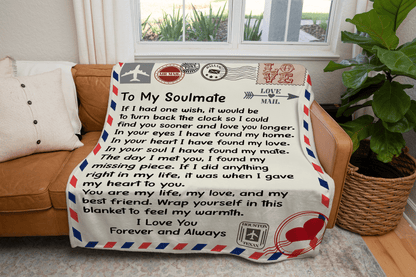 AIR MAIL
LOVE
LOVE
MAIL
To My Soulmate
If I had one wish, it would be
to turn back the clock so I could
find you sooner and love you longer.
In your eyes I have found my home.
In your heart I have found my love.
In your soul I have found my mate.
The day I met you, I found my
missing piece. If I did anything
right in my life, it was when I gave
my heart to you.
You are my life, my love, and my
best friend. Wrap yourself in this
blanket to feel my warmth.
I Love You
Forever and Always
HOUSTON
TEXAS